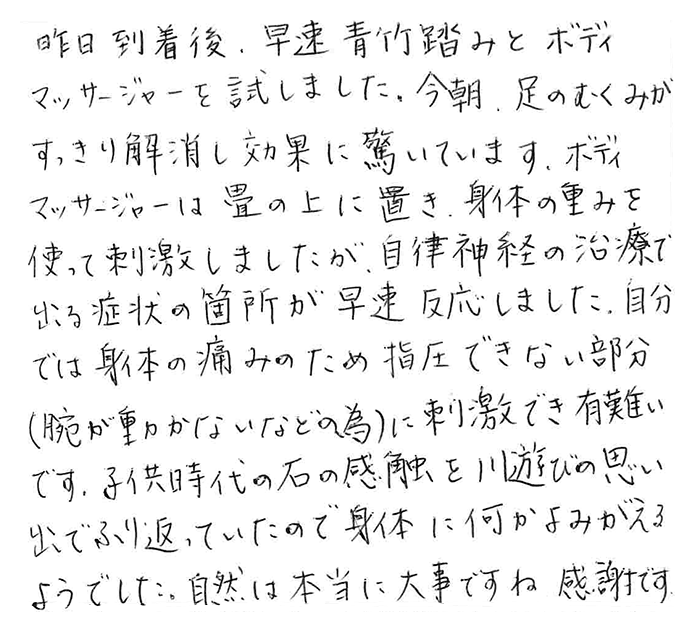 昨日到着後、早速青竹踏みとボディ
マッサージャーを試しました。今朝、足のむくみが
すっきり解消し効果に驚いています、ボディ
マッサージャーは畳の上に置き、身体の重みを
使って刺激しましたが、自律神経の治療で
出る症状の箇所が早速反応しました、自分
では身体の痛みのため指圧できない部分
(腕が動かないなどの為)に刺激でき有難い
です、子供時代の石の感触を川遊びの思い
出でふり返っていたので身体に何かよみがえる
ようでした。自然は本当に大事ですね 感謝です、